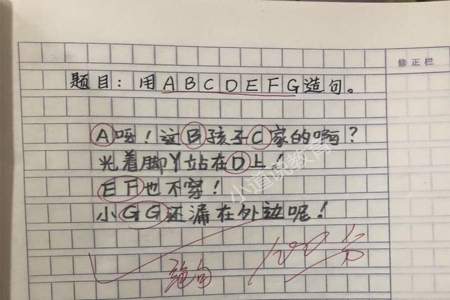 修正栏
题目：用ABCDEFG造句。
A呀！这B孩子C家的啊？
光着脚丫站在D上！
EF也不穿！
小GG还漏在外边呢！
小道说教育
100分